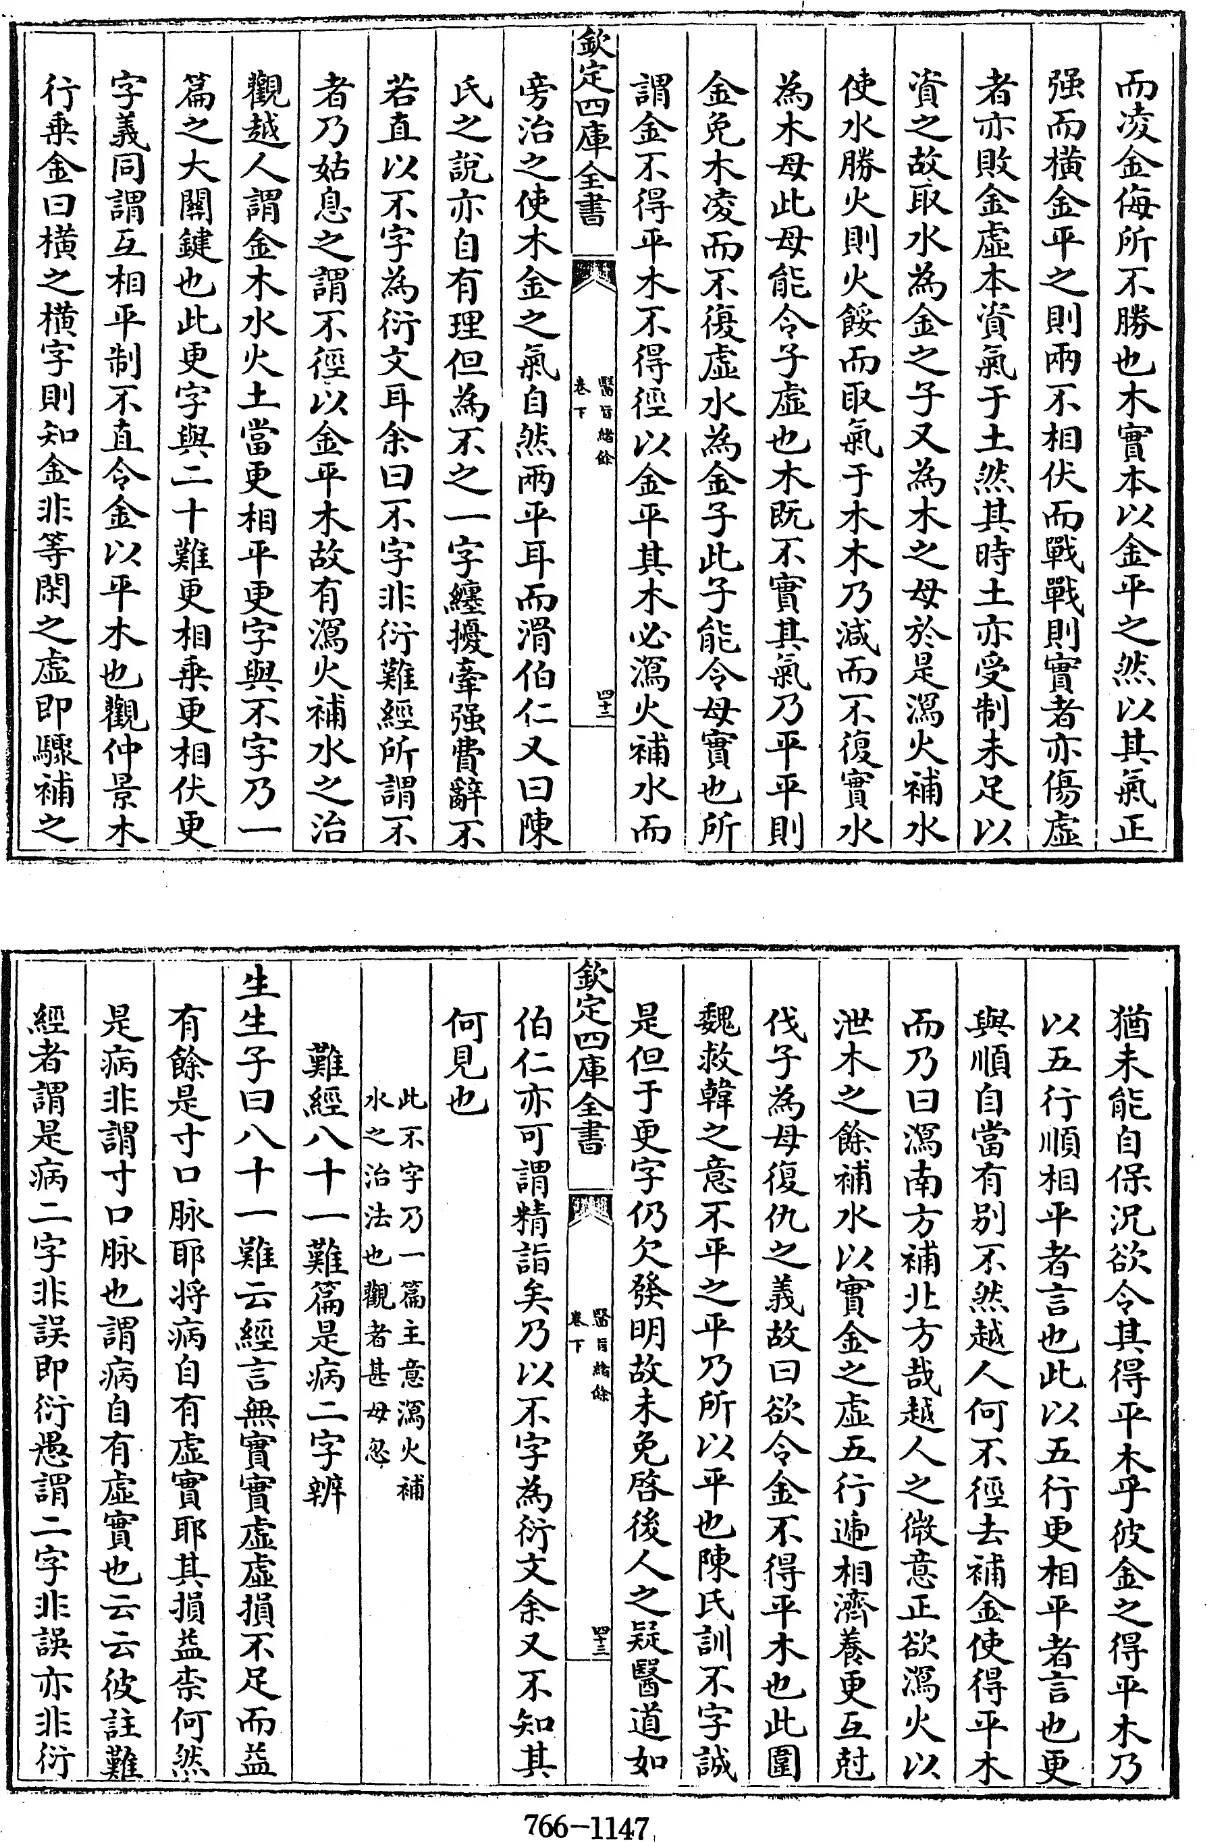 而凌金侮所不勝也木實本以金平之然以其氣正
强而橫金平之則兩不相伏而戰戰則實者亦傷虛
者亦敗金虛本資氣于土然其時土亦受制未足以
資之故取水為金之子又為木之母於是瀉火補水
使水勝火則火餒而取氣于木木乃減而不復實水
為木母此母能令子虛也木既不實其氣乃平平則
金免木凌而不復虛水為金子此子能令母實也所
謂金不得平木不得徑以金平其木必瀉火補水而
欽定四庫全書
醫旨緒餘
卷下
四十二
旁治之使木金之氣自然兩平耳而滑伯仁又曰陳
氏之說亦自有理但為不之一字纏擾牽强費辭不
若直以不字為衍文耳余曰不字非衍難經所謂不
者乃姑息之謂不徑以金平木故有瀉火補水之治
觀越人謂金木水火土當更相平更字與不字乃一
篇之大關鍵也此更字與二十難更相乘更相伏更
字義同謂互相平制不直令金以平木也觀仲景木
行乘金曰橫之橫字則知金非等閑之虛即驟補之
猶未能自保況欲令其得平木乎彼金之得平木乃
以五行順相平者言也此以五行更相平者言也更
與順自當有别不然越人何不徑去補金使得平木
而乃曰瀉南方補北方哉越人之微意正欲瀉火以
泄木之餘補水以實金之虛五行遞相濟養更互尅
伐子為母復仇之義故曰欲令金不得平木也此圍
魏救韓之意不平之平乃所以平也陳氏訓不字誠
是但于更字仍欠發明故未免啓後人之疑醫道如
欽定四庫全書
醫旨緒餘
卷下
四十三
伯仁亦可謂精詣矣乃以不字為衍文余又不知其
何見也
此不字乃一篇主意瀉火補
水之治法也觀者甚毋忽
難經八十一難篇是病二字辨
生生子曰八十一難云經言無實實虛虛損不足而益
有餘是寸口脉耶將病自有虛實耶其損益柰何然
是病非謂寸口脉也謂病自有虛實也云云彼註難
經者謂是病二字非誤即衍愚謂二字非誤亦非衍
766-1147